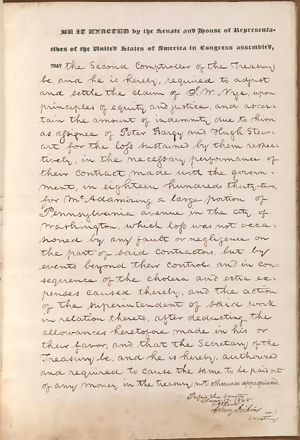 BE IT ENACTED by the Senate and House of Representa-
tives of the United States of America in Congress assembled,
THAT the Second Comptroller of the Treasury
be, and he is hereby, required to adjust
and settle the claim of J. W. Nye, upon
principles of equity and justice, and ascer-
tain the amount of indemnity due to him
as assignee of Peter Bargy and Hugh Stew-
art for the loss sustained by them respec-
tively, in the necessary performance of
their contract made with the govern-
ment, in eighteen hundred thirty-two,
for McAdamizing a large portion of
Pennsylvania avenue in the city of
Washington, which loss was not occa-
sioned by any fault or negligence on
the part of said contractors, but by
events beyond their control and in con-
sequence of the cholera and extra ex-
penses caused thereby, and the action
of the superintendent of said work
in relation thereto, after deducting the
allowances heretofore made in his or
their favor, and that the Secretary of the
Treasury be, and he is hereby, authorized
and required to cause the same to be paid out
of any money in the treasury not otherwise appropriated.
Passed the Senate